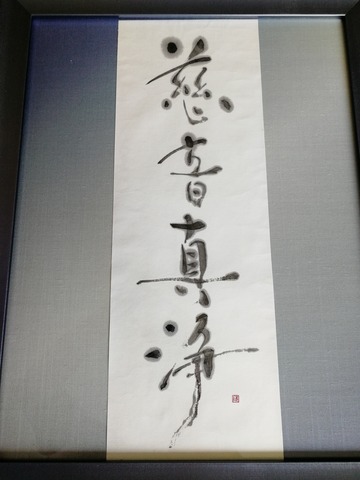 慈音真浄